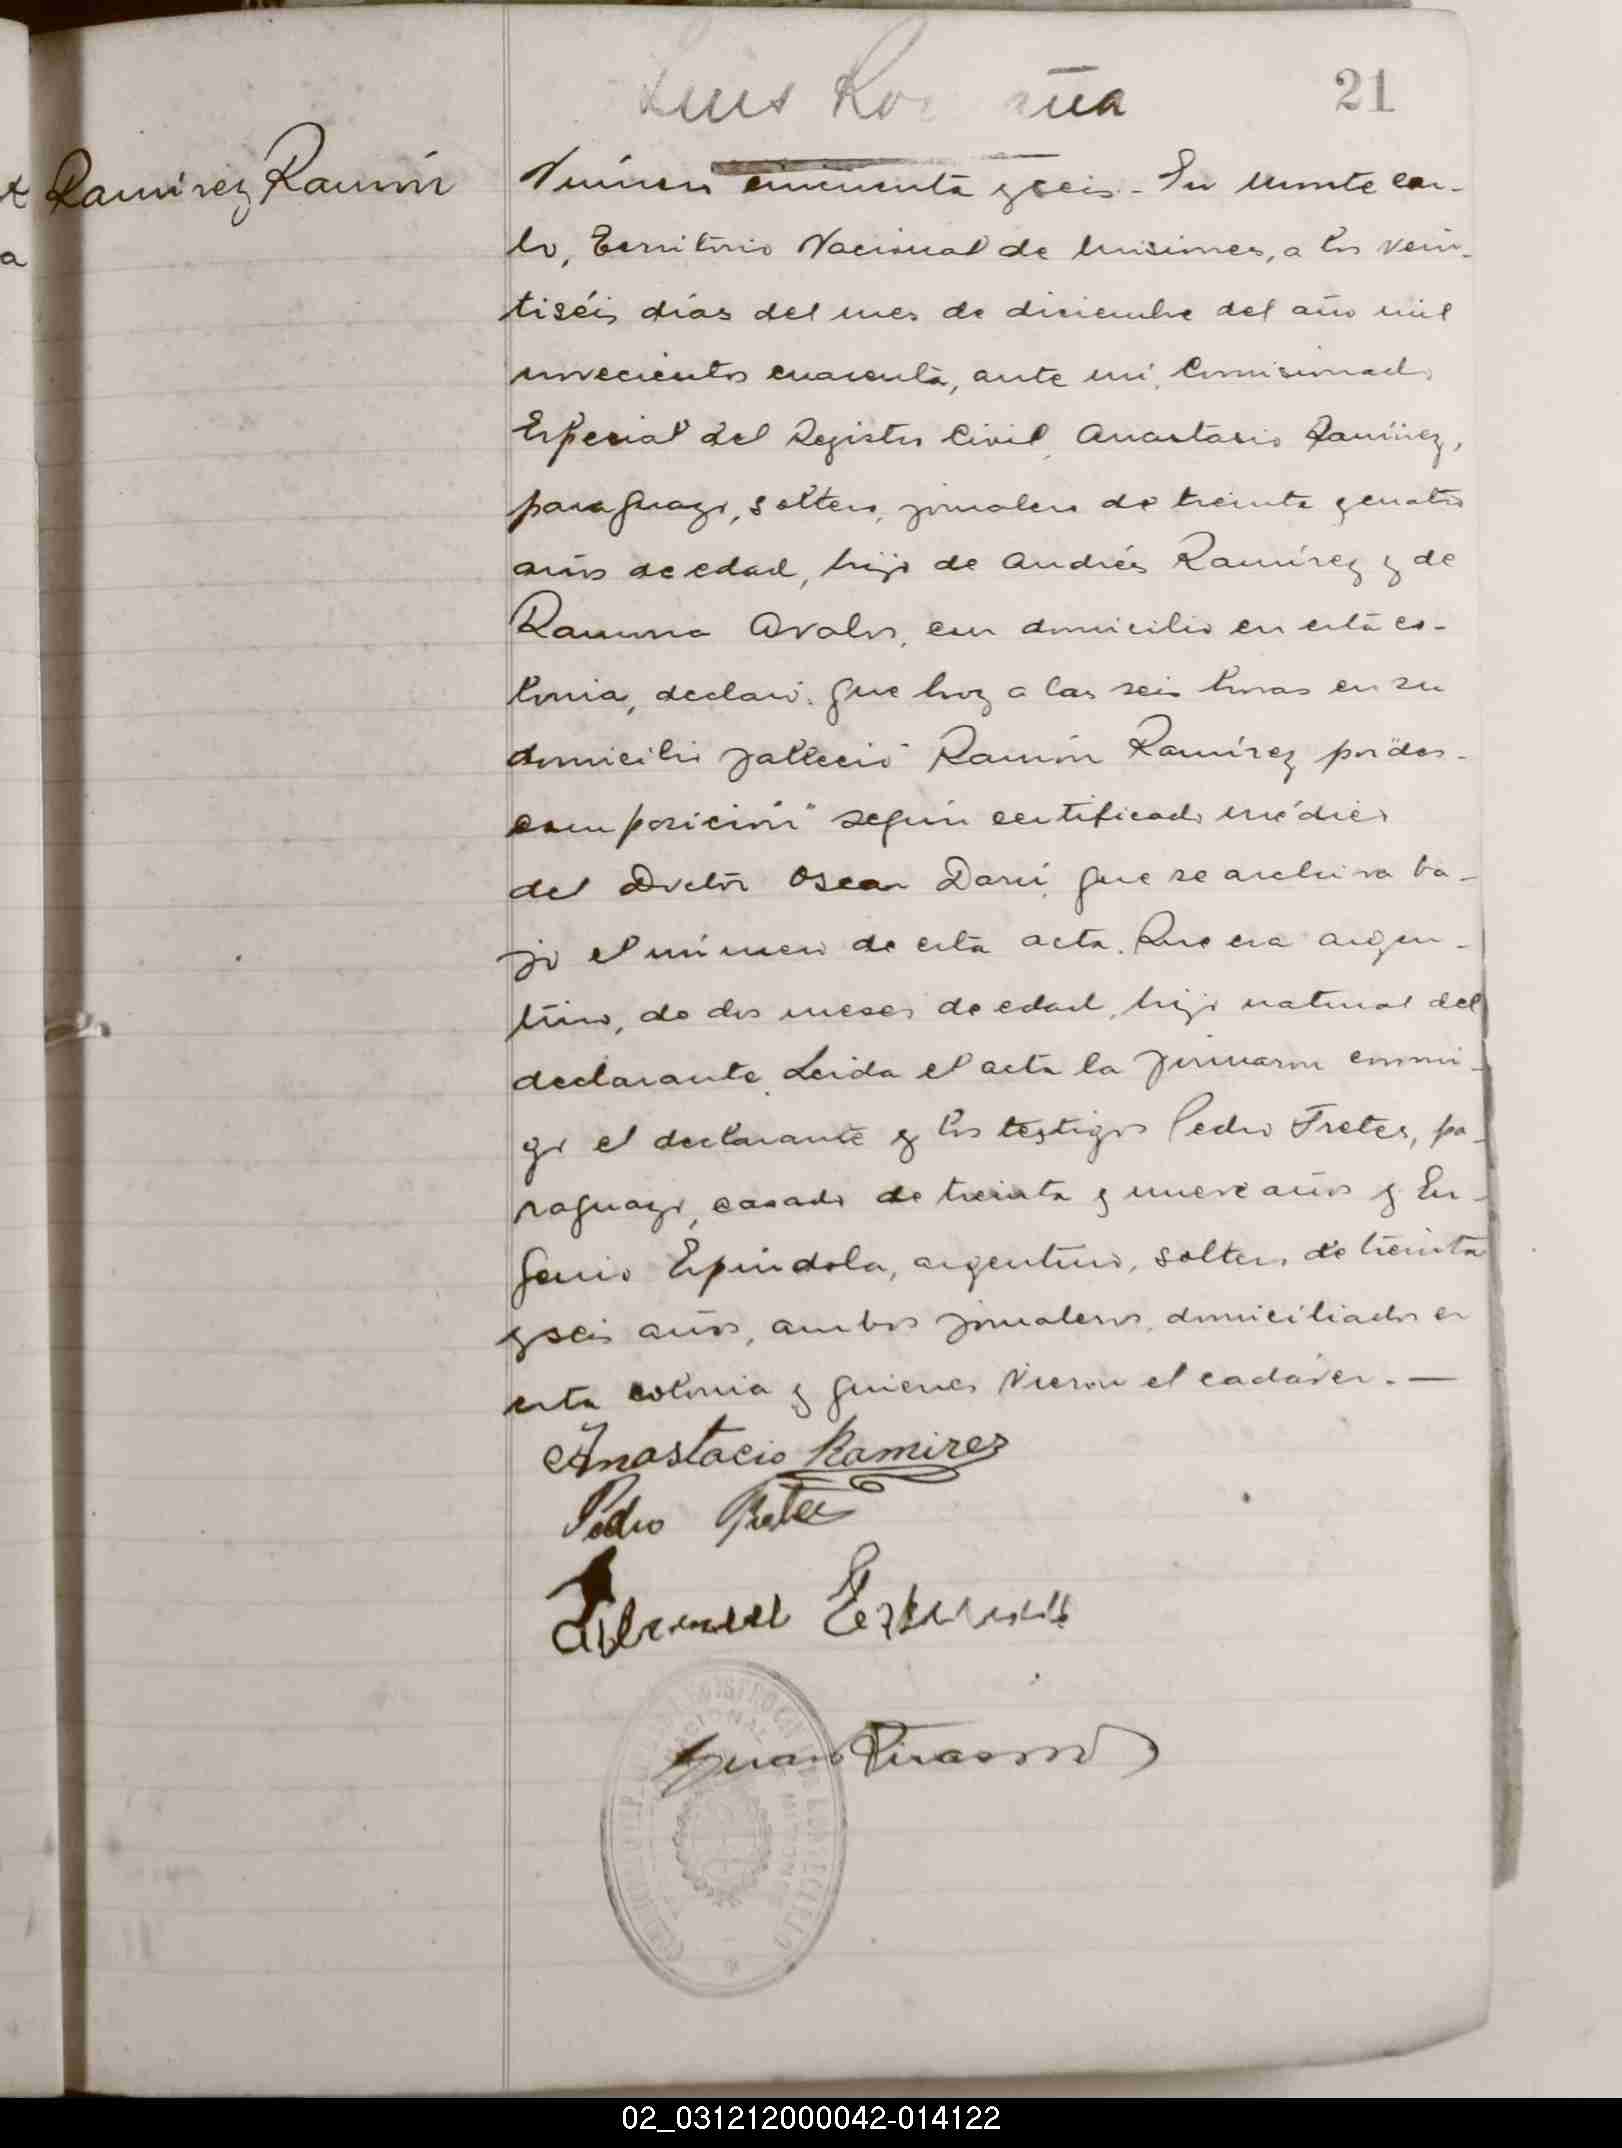 21
Ramírez Ramón
Número cincuenta y seis - En Monte Car-
lo, Territorio Nacional de Misiones, a los vein-
tiséis días del mes de diciembre del año mil
novecientos cuarenta, ante mi, Comisionado
Especial del Registro Civil, Anastacio Ramírez,
paraguayo, soltero, jornalero de treinta y cuatro
años de edad, hijo de Andrés Ramírez y de
Ramona Avalos, con domicilio en esta co-
lonia, declaró: que hoy a las seis horas en su
domicilio falleció Ramón Ramírez por "des-
composición" según certificado médico
del Doctor Oscar Darú, que se archiva ba-
jo el número de esta acta. Que era argen-
tino, de dos meses de edad, hijo natural del
declarante. Leida el acta la firmaron conmi-
go el declarante y los testigos Pedro Fretes, pa-
raguayo, casado de treinta y nueve años y Eu-
genio Espíndola, argentino, soltero, de treinta
y seis años, ambos jornaleros, domiciliados en
esta colonia y quienes vieron el cadáver. —
Anastacio Ramirez
Pedro Fretes
Juan
02_031212000042-014122